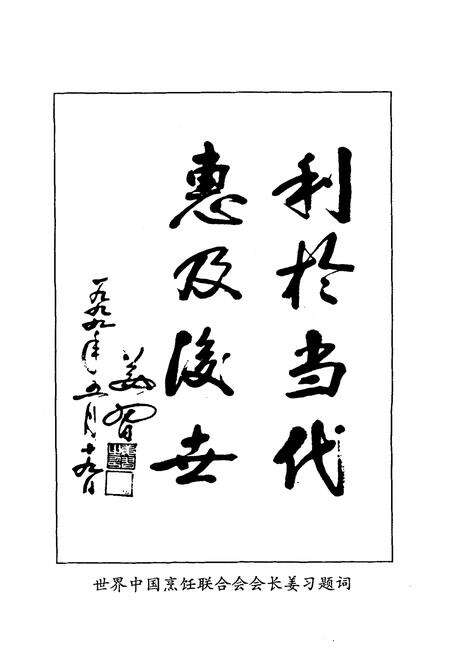 利於当代
惠及後世
姜習
一九九九年五月十九日
世界中国烹饪联合会会长姜习题词